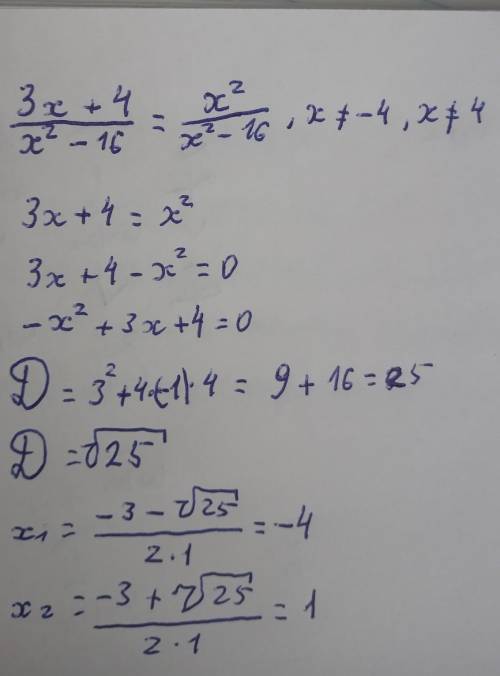 (3x + 4)/(x² - 16) = x²/(x² - 16), x ≠ -4, x ≠ 4
3x + 4 = x²
3x + 4 - x² = 0
-x² + 3x + 4 = 0
D = 3² + 4·(-1)·4 = 9 + 16 = 25
D = √25
x₁ = (-3 - √25)/(2·1) = -4
x₂ = (-3 + √25)/(2·1) = 1